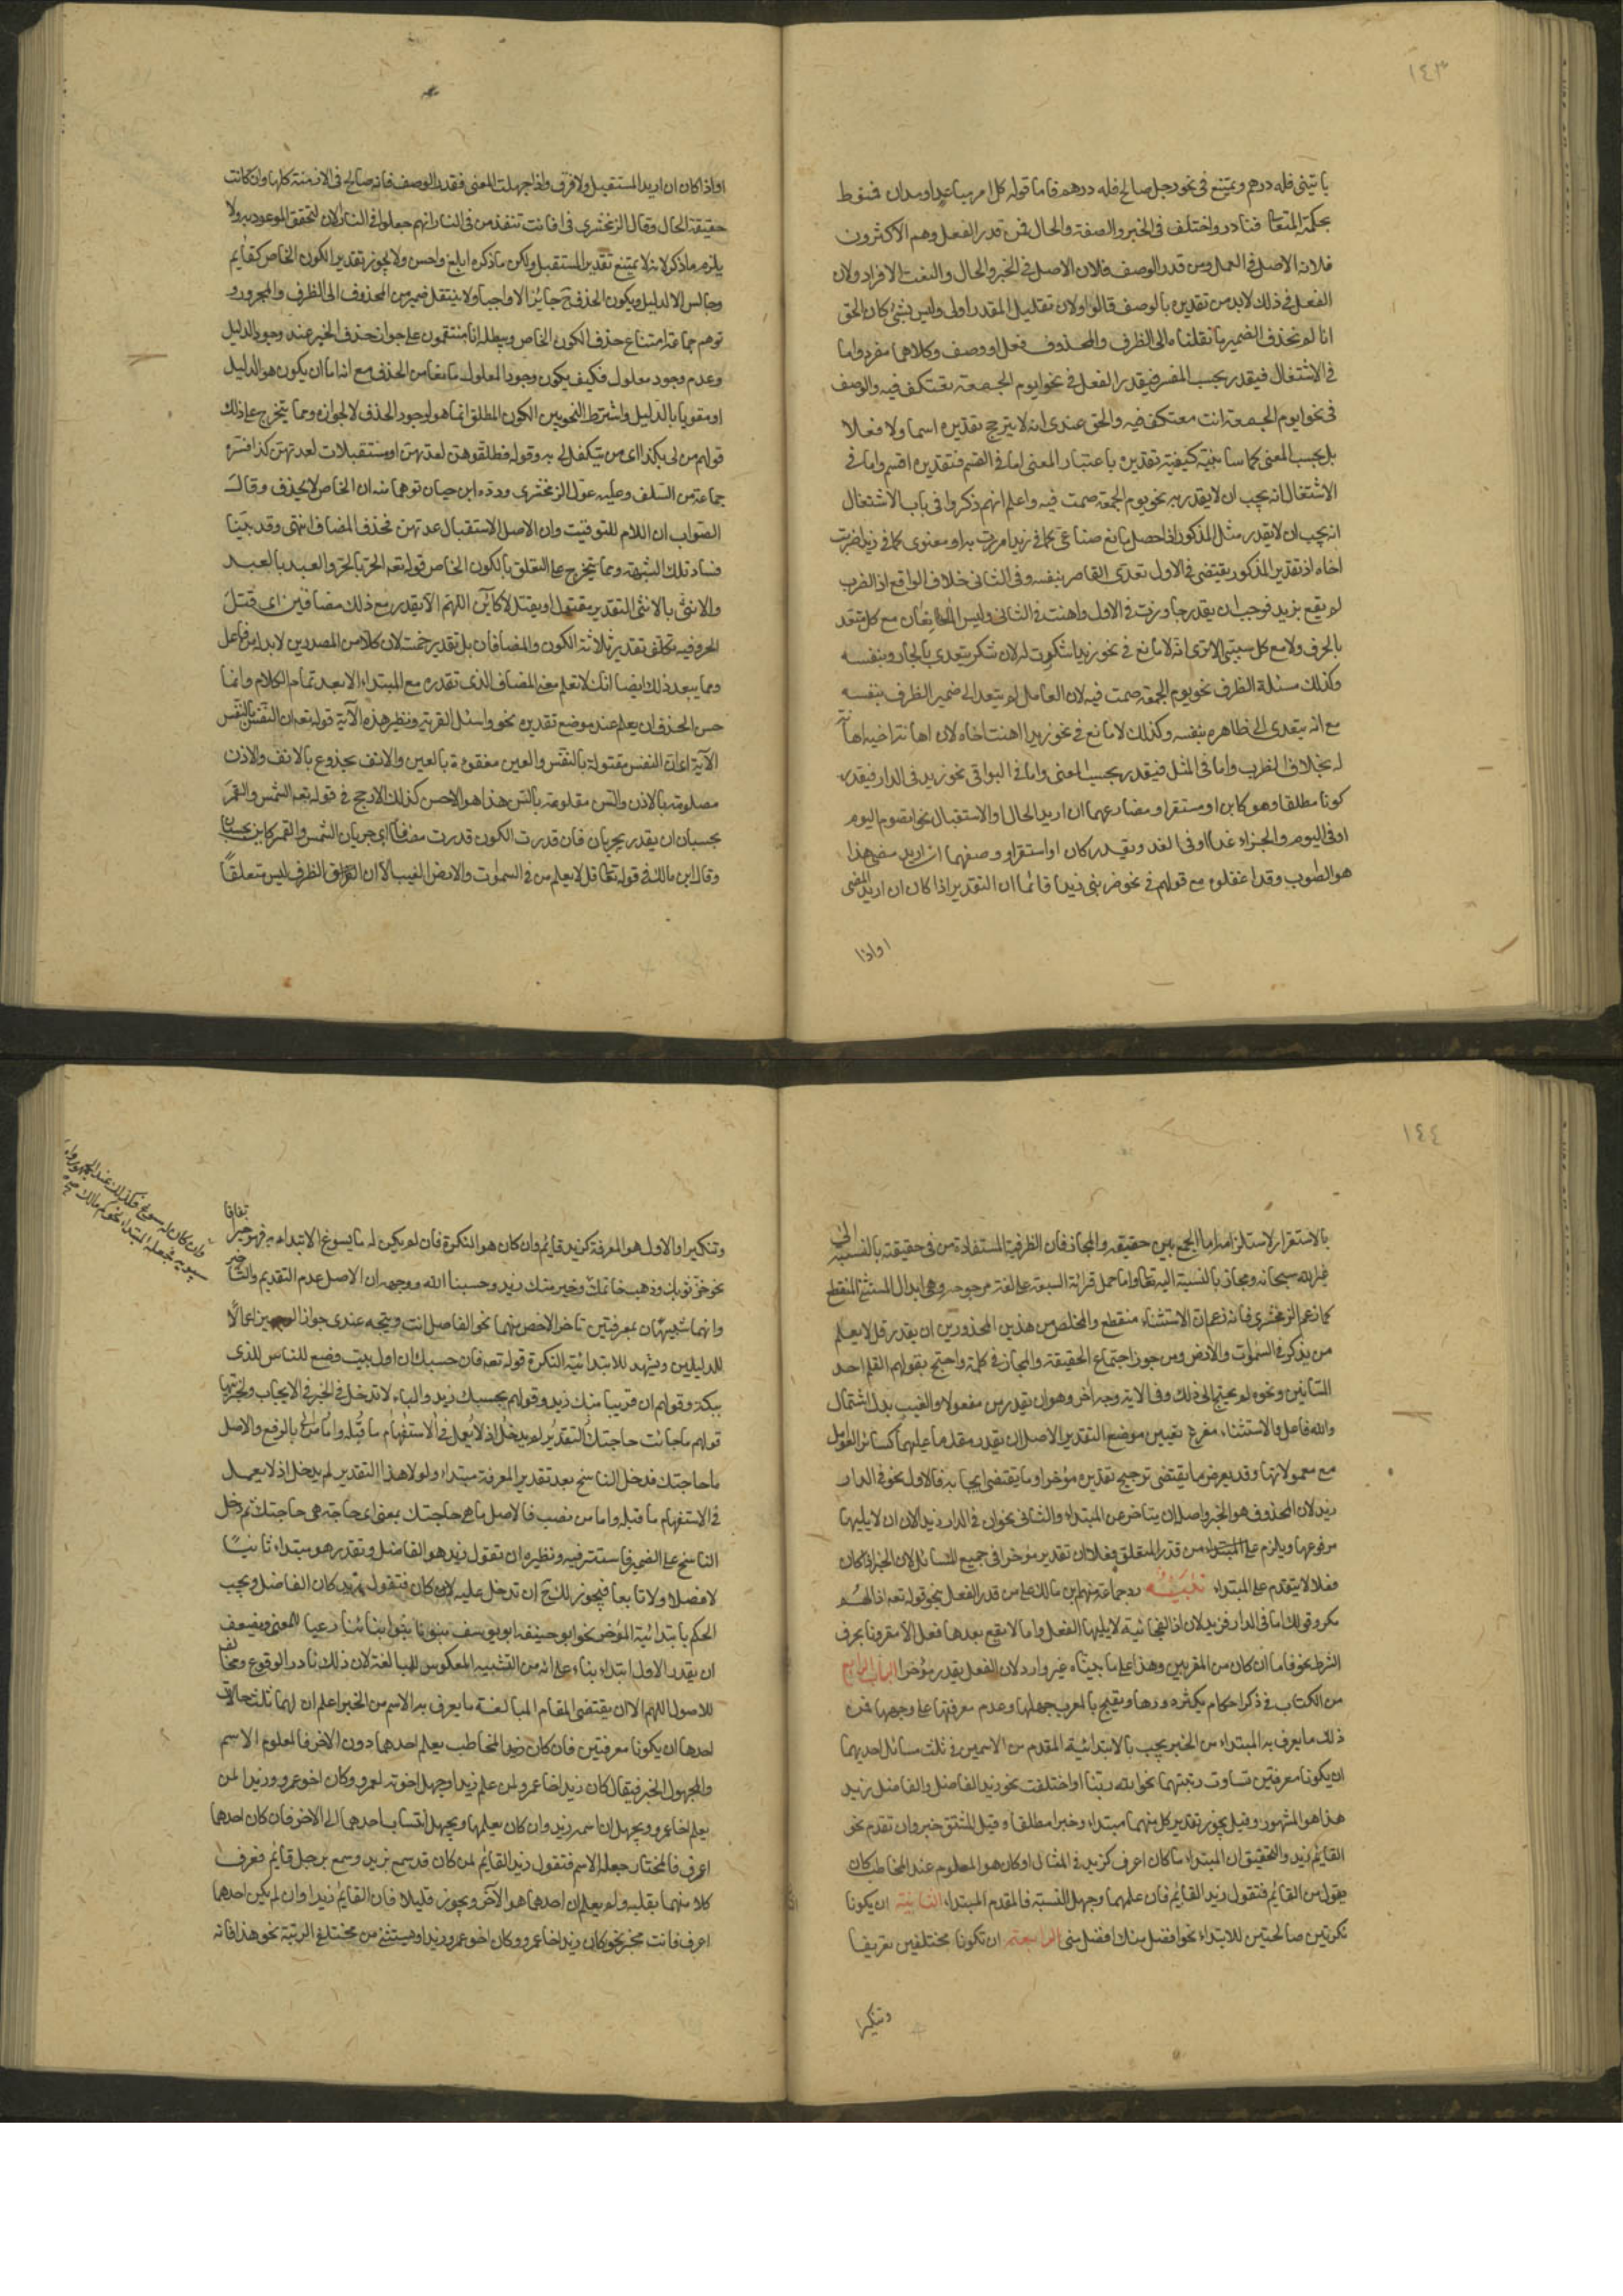 ١٤٣
ياتيني فله درهم ويمتنع في نحو رجل صالح فله درهم فاما قوله كل امر مباعد او مدان فمنوط
بحكمة المتعال فنادر واختلف في الخبر والصفة والحال فمن قدر الفعل وهم الاكثرون
فلانه الاصل في العمل ومن قدر الوصف فلان الاصل في الخبر والحال والنعت الافراد ولان
الفعل في ذلك لابد من تقديره بالوصف قالوا ولان تقليل المقدر اولى وليس بشئ كان الحق
انا لم نحذف الضمير بل نقلناه الى الظرف والمحذوف فعل او وصف وكلاهما مفرد واما
في الاشتغال فيقدر بحسب المفسر فيقدر الفعل في نحو ايوم الجمعة تعتكف فيه والوصف
في نحو ايوم الجمعة انت معتكف فيه والحق عندى انه لا يترجح تقديره اسما ولا فعلا
بل بحسب المعنى كما سابينه كيفية تقديره باعتبار المعنى اما في القسم فتقديره اقسم واما في
الاشتغال انه يجب ان لا يقدر به نحو يوم الجمعة صمت فيه واعلم انهم ذكروا في باب الاشتغال
انه يجب ان لا يقدر مثل المذكور اذا حصل مانع صناعى كما في زيدا مررت به او معنوى كما في زيدا ضربت
اخاه اذ تقدير المذكور يقتضى في الاول تعدى القاصر بنفسه وفي الثانى خلاف الواقع اذ الضرب
لم يقع بزيد فوجب ان يقدر جاوزت في الاول واهنت في الثانى وليس المانعان مع كل متعد
بالحرف ولا مع كل سببى الا ترى انه لا مانع في نحو زيدا شكرت له لان شكر يتعدى بالجار وبنفسه
وكذلك مسئلة الظرف نحو يوم الجمعة صمت فيه لان العامل لم يتعد الى ضمير الظرف بنفسه
مع انه يتعدى الى ظاهره بنفسه وكذلك لا مانع في نحو زيدا اهنت اخاه لان اهانة اخيه اهانة
له بخلاف الضرب واما في المثل فيقدر بحسب المعنى واما في البواقى نحو زيد في الدار فيقدر
كونا مطلقا وهو كاين او مستقر او مضارعهما ان اريد الحال او الاستقبال نحو الصوم اليوم
او في اليوم والجزاء غدا او في الغد ويقدر كان او استقر او وصفهما ان اريد مضى هذا
هو الصواب وقد اغفلوه مع قولهم في نحو ضربى زيدا قائما ان التقدير اذا كان ان اريد المضى
او اذا
او اذا كان ان اريد المستقبل ولا فرق واذا جهلت المعنى فقدر الوصف فانه صالح في الازمنة كلها وان كانت
حقيقة الحال وقال الزمخشرى في افانت تنقذ من في النار انهم جعلوا في النار الان لتحقق الموعود به ولا
يلزم ما ذكر لانه لا يمتنع تقدير المستقبل ولكن ما ذكره ابلغ واحسن ولا يجوز تقدير الكون الخاص كقايم
وجالس الا لدليل ويكون الحذف ح جايزا لا واجبا ولا ينتقل ضمير من المحذوف الى الظرف والمجرور و
توهم جماعة امتناع حذف الكون الخاص ويبطله انا متفقون على جواز حذف الخبر عند وجود الدليل
وعدم وجود معمول فكيف يكون وجود المعمول مانعا من الحذف مع انه اما ان يكون هو الدليل
او مقويا بالدليل واشتراط النحويين الكون المطلق انما هو لوجود الحذف لا لجوازه ومما يتخرج على ذلك
قولهم من لى بكذا اى من يتكفل لى به وقوله فطلقوهن لعدتهن اى مستقبلات لعدتهن كذا فسره
جماعة من السلف وعليه عول الزمخشرى ورده ابن حيان توهما منه ان الخاص لا يحذف وقال
الصواب ان اللام للتوقيت وان الاصل لاستقبال عدتهن فحذف المضاف انتهى وقد بينا
فساد تلك الشبهة ومما يتخرج على التعلق بالكون الخاص قوله تعه الحر بالحر والعبد بالعبد
والانثى بالانثى التقدير مقتول او يقتل لا كاين اللهم الا يقدر مع ذلك مضافين اى قتل
الحر وفيه تكلف تقدير ثلاثة الكون والمضافان بل تقدير خمسة لان كلا من المصدرين لابد له من فاعل
ومما يبعد ذلك ايضا انك لا تعلم معنى المضاف الذى تقدره مع المبتداء الا بعد تمام الكلام وانما
حسن الحذف ان يعلم عند موضع تقديره نحو واسئل القرية ونظير هذه الآية قوله تعه ان النفس بالنفس
الآية اى ان النفس مقتولة بالنفس والعين مفقوءة بالعين والانف مجدوع بالانف والاذن
مصلومة بالاذن والسن مقلوعة بالسن هذا هو الاحسن كذلك الارجح في قوله تعه الشمس والقمر
بحسبان ان يقدر يجريان فان قدرت الكون قدرت مضافا اى جريان الشمس والقمر كاين بحسبان
وقال ابن مالك في قوله تعالى قل لا يعلم من في السموات والارض الغيب الا الله ان الظرف ليس متعلقا
١٤٤
بالاستقرار لاستلزامه اما الجمع بين حقيقة والمجاز فان الظرفية المستفادة من في حقيقة بالنسبة الى
غير الله سبحانه ومجاز بالنسبة اليه تعالى واما حمل قرائة السبعة على لغة مرجوحة وهى ابدال المستثنى المنقطع
كما زعم الزمخشرى فانه زعم ان الاستثناء منقطع والمخلص من هذين المحذورين ان يقدر قل لا يعلم
من يذكر في السموات والارض ومن جوز اجتماع الحقيقة والمجاز في كلمة واحتج بقولهم القلم احد
اللسانين ونحوه لم يحتج الى ذلك وفي الاية وجه آخر وهو ان يقدر من مفعولا والغيب بدل اشتمال
والله فاعل والاستثناء مفرغ تعيين موضع التقدير الاصل ان يقدر مقدما عليهما كسائر العوامل
مع معمولاتها وقد يعرض ما يقتضى ترجيح تقديره مؤخرا وما يقتضى ايجابه فالاول نحو في الدار
زيد لان المحذوف هو الخبر واصله ان يتاخر عن المبتداء والثانى نحو ان في الدار زيدا لان ان لا يليها
مرفوعها ويلزم على المبتداء من قدر المتعلق فعلا ان تقديره مؤخرا في جميع المسائل لان الخبر اذا كان
فعلا لا يتقدم على المبتداء تنبيه رد جماعة منهم ابن مالك على من قدر الفعل بنحو قوله تعه اذا لهم
مكر وقولك اما في الدار فزيد لان اذا الفجائية لا يليها الفعل واما لا يقع بعدها فعل الا مقرونا بحرف
الشرط نحو فاما ان كان من المقربين وهذا على ما بيناه غير وارد لان الفعل يقدر مؤخرا الباب الرابع
من الكتاب في ذكر احكام يكثر دورها ويقبح بالمعرب جهلها وعدم معرفتها على وجهها فمن
ذلك ما يعرف به المبتداء من الخبر يجب بالابتدائية المقدم من الاسمين في ثلث مسائل احديها
ان يكونا معرفتين تساوت رتبتهما نحو الله ربنا او اختلفت نحو زيد الفاضل والفاضل زيد
هذا هو المشهور وقيل يجوز تقدير كل منهما مبتداء وخبرا مطلقا وقيل المشتق خبر وان تقدم نحو
القايم زيد والتحقيق ان المبتداء ما كان اعرف كزيد في المثال او كان هو المعلوم عند المخاطب كان
يقول من القايم فتقول زيد القايم فان علمهما وجهل النسبة فالمقدم المبتداء الثانية ان يكونا
نكرتين صالحتين للابتداء نحو افضل منك افضل منى الرابعة ان تكونا مختلفين تعريفا
وتنكيرا
وتنكيرا والاول هو المعرفة كزيد قايم وان كان هو النكرة فان لم يكن له ما يسوغ الابتداء به فهو خبر اتفاقا
نحو خز ثوبك وذهب خاتمك وخير منك زيد وحسبنا الله ووجهه ان الاصل عدم التقديم والتاخير
وانهما شبيهان بمعرفتين تاخر الاخص منهما نحو الفاضل انت ويتجه عندى جواز الوجهين اعمالا
للدليلين ويشهد للابتدائية النكرة قوله تعه فان حسبك ان اول بيت وضع للناس للذى
ببكة وقولهم ان قريبا منك زيد وقولهم بحسبك زيد والباء لا تدخل في الخبر في الايجاب ولخبريتها
قولهم ما جاءت حاجتك التقدير لم يدخل اذ لا يعمل في الاستفهام ما قبله واما من بالرفع والاصل
ما حاجتك فدخل الناسخ بعد تقدير المعرفة مبتداء ولولا هذا التقدير لم يدخل اذ لا يعمل
في الاستفهام ما قبله واما من نصب فالاصل ما هى حاجتك بمعنى اى حاجة هى حاجتك ثم دخل
الناسخ على الضمير فاستتر فيه ونظيره ان تقول زيد هو الفاضل وتقدر هو مبتداء ثانيا
لا فصلا ولا تابعا فيجوز لك ح ان تدخل عليه كان فتقول زيد كان الفاضل ويجب
الحكم بابتدائية المؤخر نحو ابو حنيفة ابو يوسف بنونا بنو ابنائنا رعيا للمعنى ويضعف
ان يقدر الاول ابتداء بناء على انه من التشبيه المعكوس للمبالغة لان ذلك نادر الوقوع ومخالف
للاصول اللهم الا ان يقتضى المقام المبالغة ما يعرف به الاسم من الخبر اعلم ان لهما ثلث حالات
احدها ان يكونا معرفتين فان كان المخاطب يعلم احدهما دون الاخر فالمعلوم الاسم
والمجهول الخبر فيقال كان زيد اخا عمرو لمن علم زيدا وجهل اخوته لعمرو وكان اخو عمرو زيدا لمن
يعلم اخا عمرو ويجهل ان اسمه زيد وان كان يعلمهما ويجهل انتساب احدهما الى الاخر فان كان احدهما
اعرف فالمختار جعله الاسم فتقول كان زيد القايم لمن كان قد سمع بزيد وسمع برجل قايم فعرف
كلا منهما بقلبه ولم يعلم ان احدهما هو الآخر ويجوز قليلا كان القايم زيدا وان لم يكن احدهما
اعرف فانت مخير نحو كان زيد اخا عمرو وكان اخو عمرو زيدا ويستثنى من مختلفى الرتبة نحو هذا فانه
وان كان له مسوغ فكذلك عند الجمهور واما
سيبويه فيجعله المبتداء نحو كم مالك صح